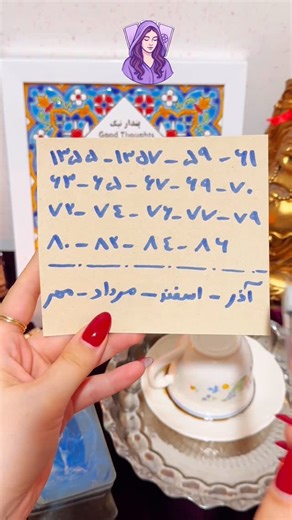 پندار نیک
Good Thoughts
۱۳۵۵ - ۱۳۵۷ - ۵۹ - ۶۱
۶۳ - ۶۵ - ۶۷ - ۶۹ - ۷۰
۷۲ - ۷۴ - ۷۶ - ۷۷ - ۷۹
۸۰ - ۸۲ - ۸۴ - ۸۶
آذر - اسفند - مرداد - مهر